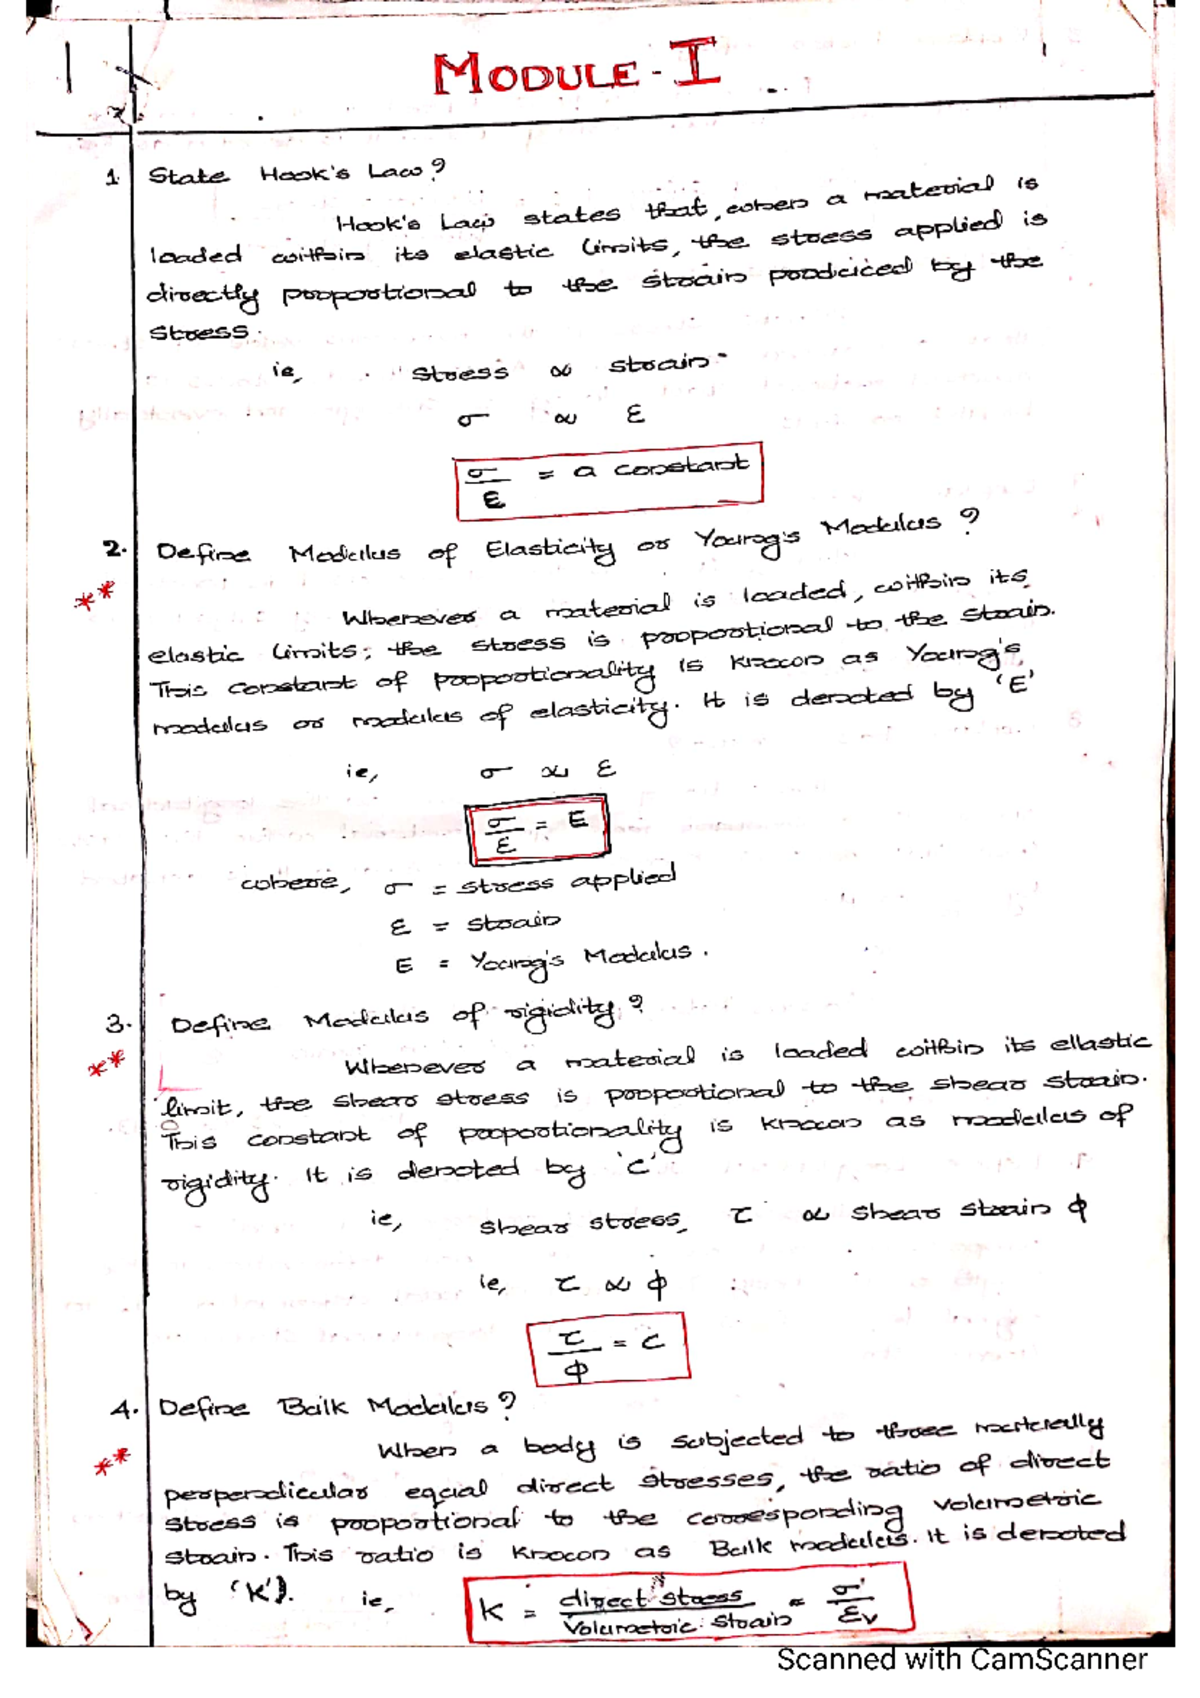 MODULE - I
1. State Hook's Law?
Hook's Law states that, when a material is
loaded within its elastic limits, the stress applied is
directly proportional to the strain produced by the
stress.
ie, stress ∝ strain
σ ∝ ε
σ/ε = a constant
2. Define Modulus of Elasticity or Young's Modulus ?
** Whenever a material is loaded, within its
elastic limits; the stress is proportional to the strain.
This constant of proportionality is known as Young's
modulus or modulus of elasticity. It is denoted by 'E'
ie, σ ∝ ε
σ/ε = E
where, σ = stress applied
ε = strain
E = Young's Modulus.
3. Define Modulus of rigidity ?
** Whenever a material is loaded within its ellastic
limit, the shear stress is proportional to the shear strain.
This constant of proportionality is known as modulus of
rigidity. It is denoted by 'C'
ie, shear stress, τ ∝ shear strain ϕ
ie, τ ∝ ϕ
τ/ϕ = C
4. Define Bulk Modulus ?
** When a body is subjected to three mutually
perpendicular equal direct stresses, the ratio of direct
stress is proportional to the corresponding volumetric
strain. This ratio is known as Bulk modulus. It is denoted
by 'K'). ie, K = direct stress/Volumetric strain = σ/εv
Scanned with CamScanner